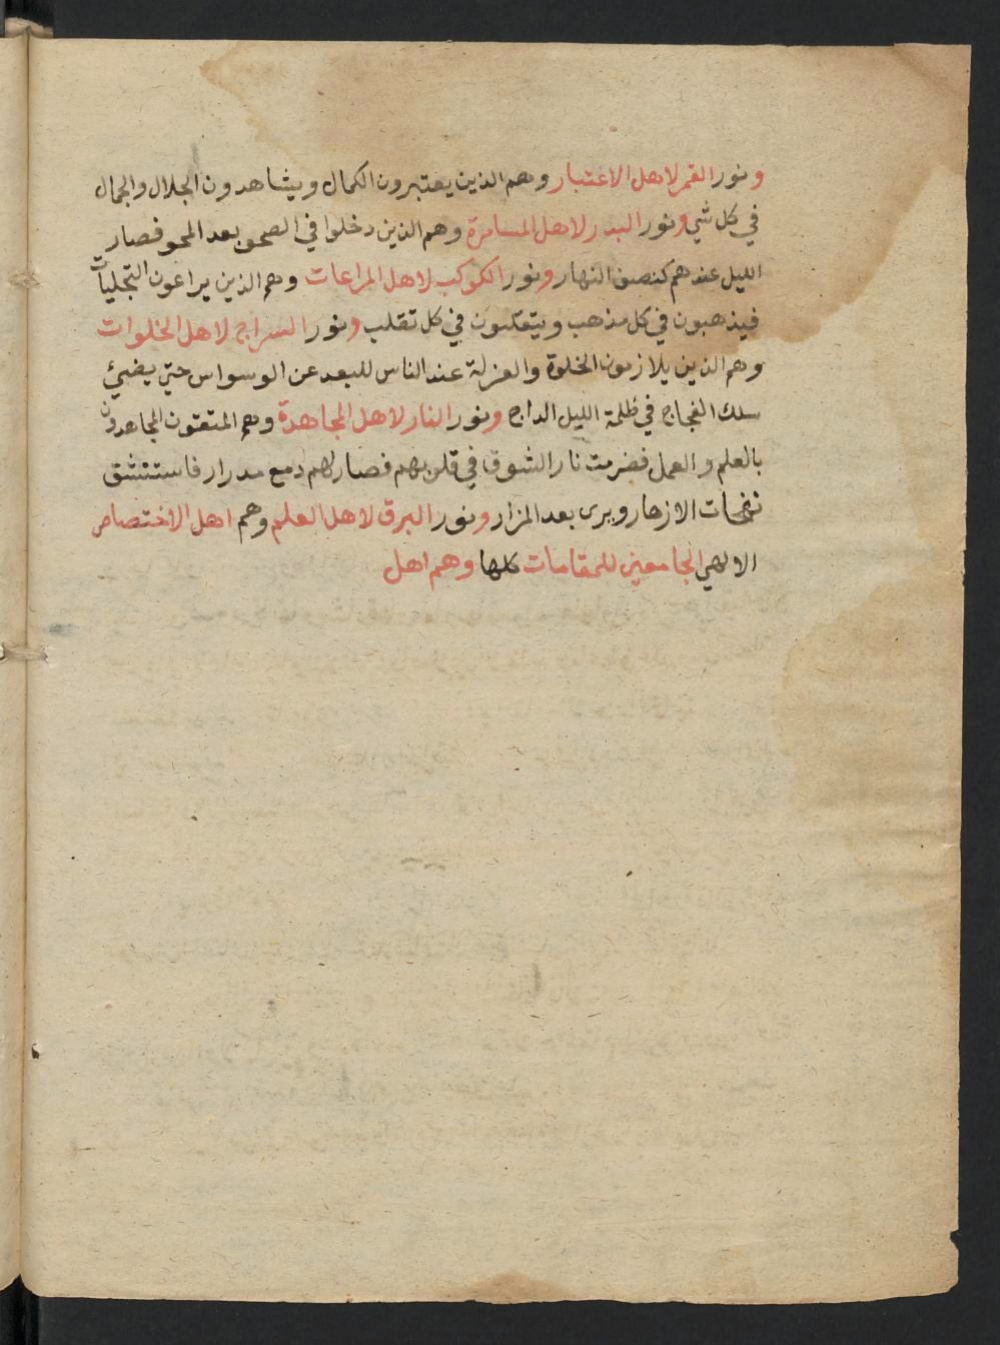 ونور القمر لاهل الاعتبار وهم الذين يعتبرون الكمال ويشاهدون الجلال والجمال
في كل شي ونور البدر لاهل المسامرة وهم الذين دخلوا في الصحو بعد المحو فصار
الليل عندهم كنصف النهار ونور الكوكب لاهل المراعات وهم الذين يراعون التجليات
فيذهبون في كل مذهب ويتقلبون في كل تقلب ونور السراج لاهل الخلوات
وهم الذين يلازمون الخلوة والعزلة عند الناس للبعد عن الوسواس حتى يضيئ
سلك الفجاج في ظلمة الليل الداج ونور النار لاهل المجاهدة وهم المتقون المجاهدون
بالعلم والعمل فضرمت نار الشوق في قلوبهم فصار لهم دمع مدرار فاستنشق
نفحات الازهار ويرى بعد المزار ونور البرق لاهل العلم وهم اهل الاختصاص
الالهي الجامعين للمقامات كلها وهم اهل